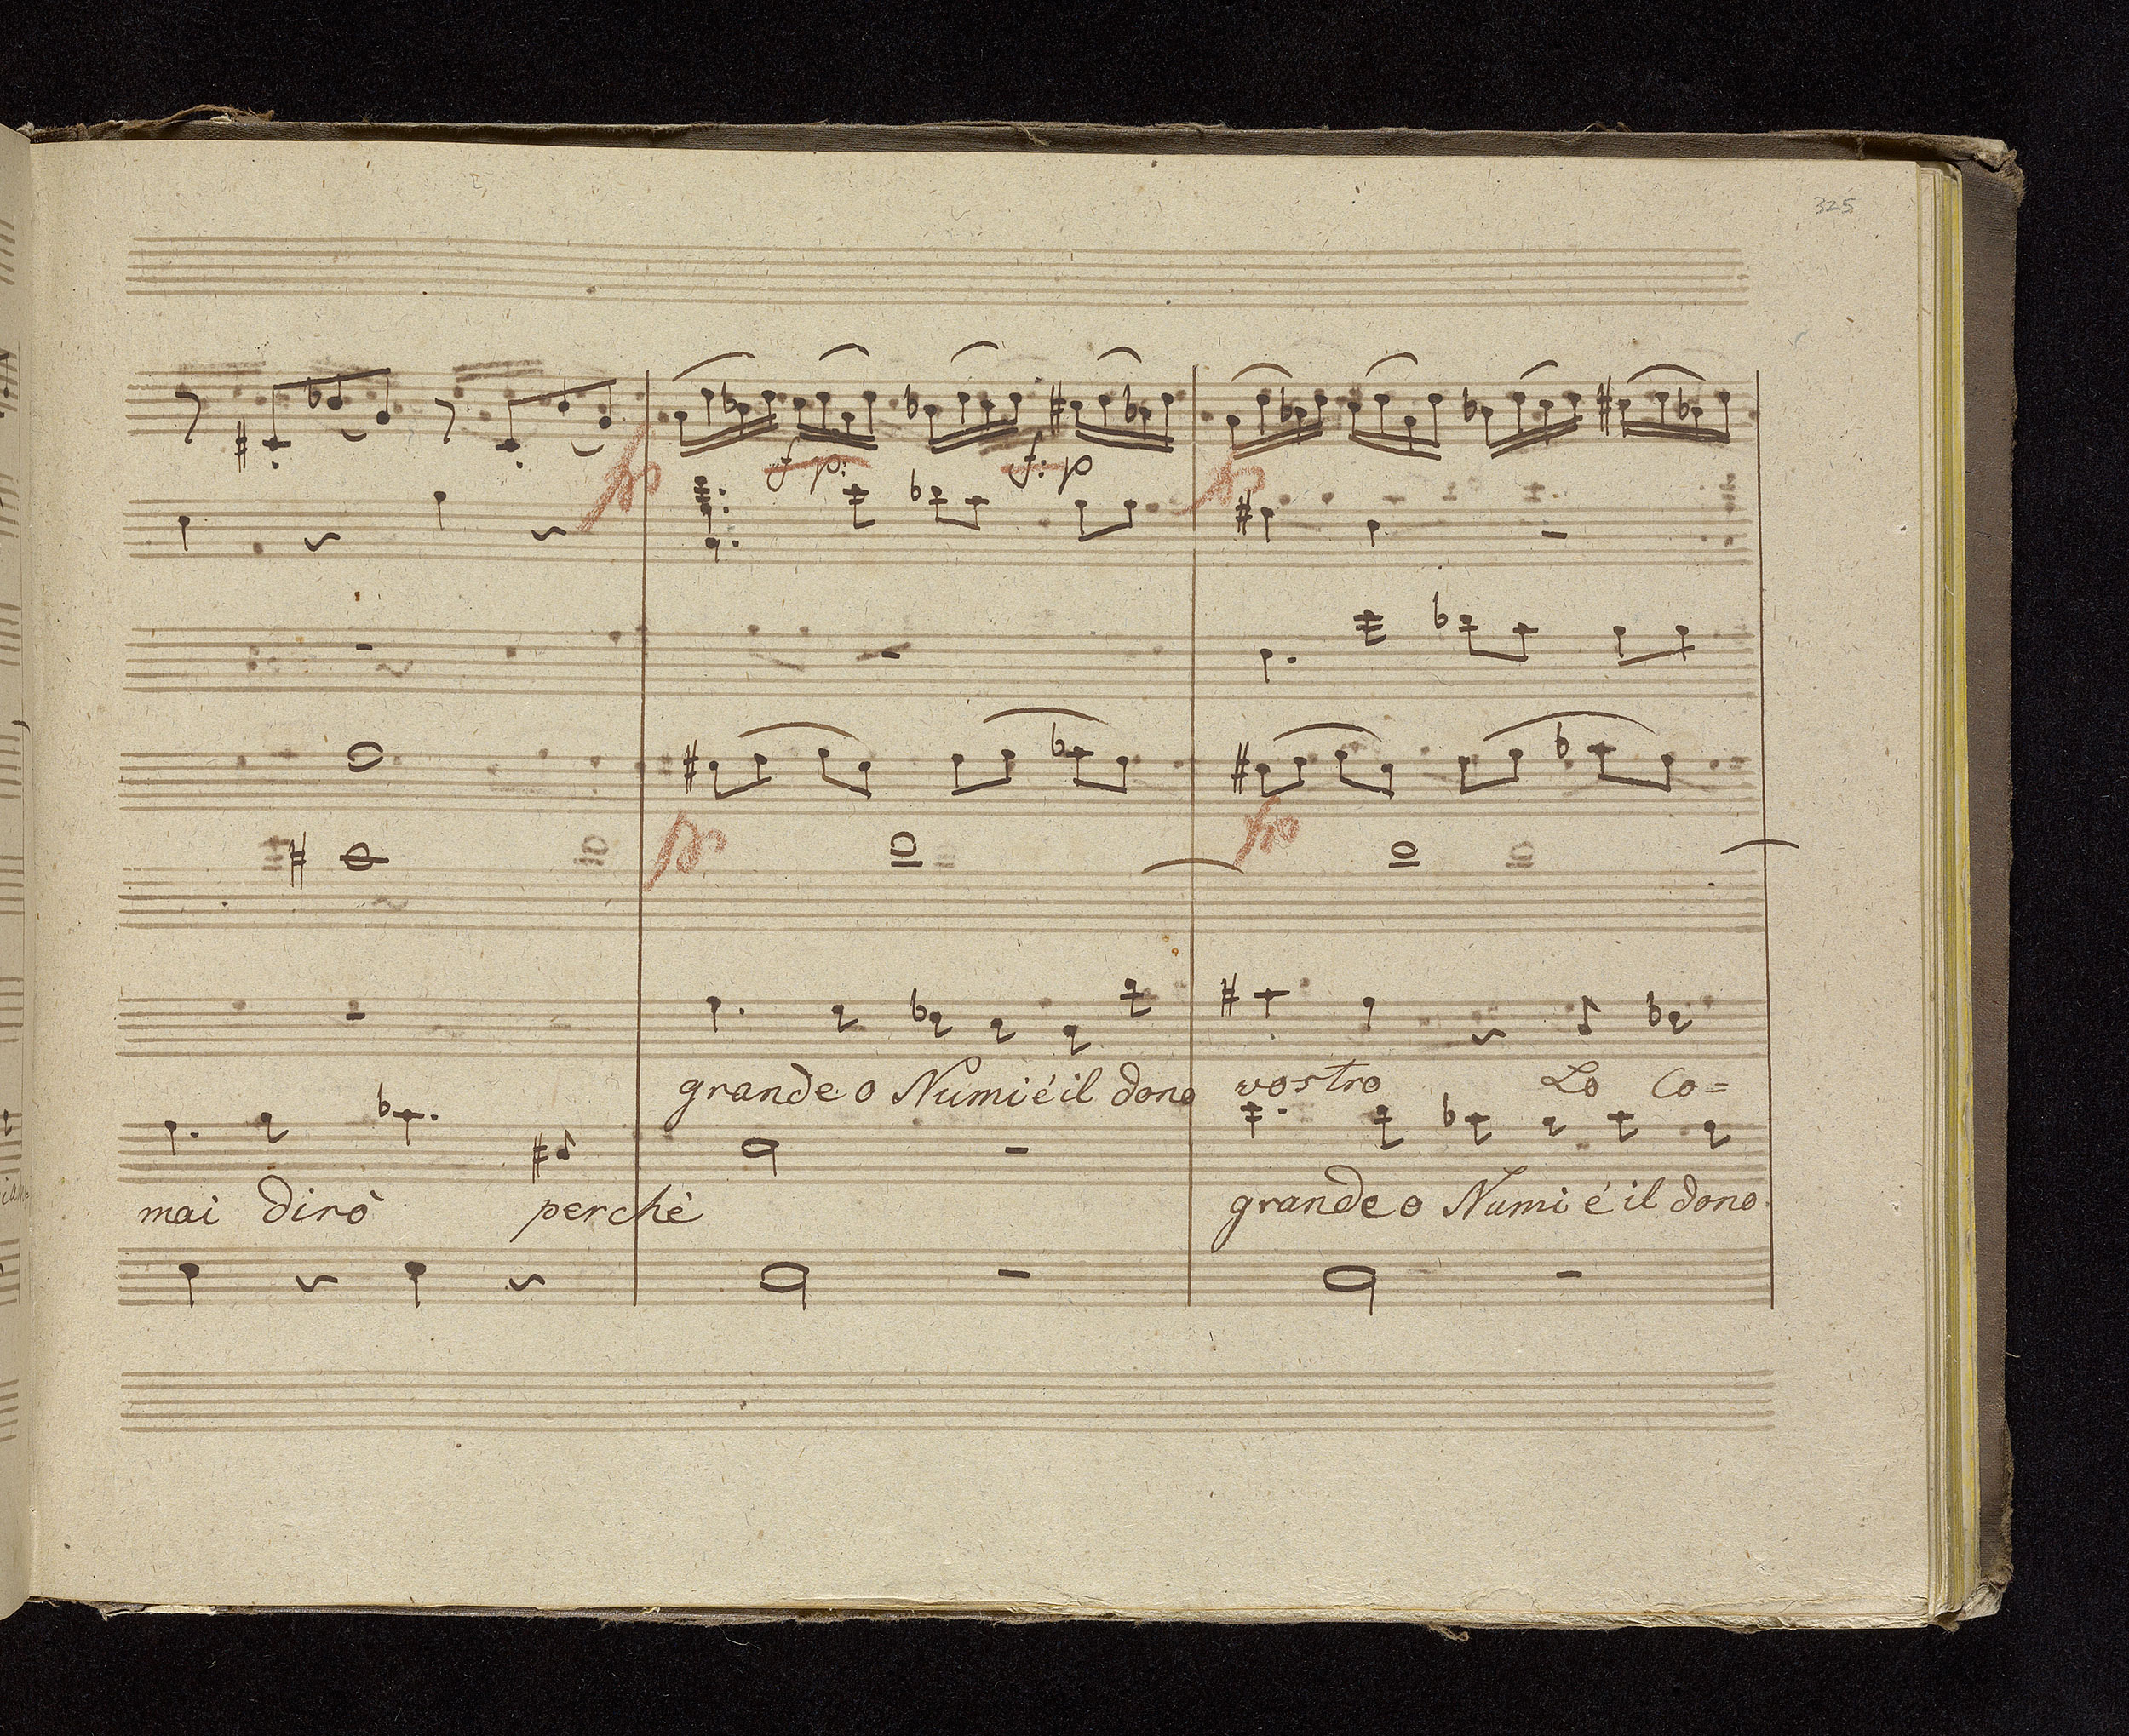 325
fp
f p:
f: p
fp
fp
fp
grande o Numi é il dono vostro Lo Co=
mai dirò perchè grande o Numi é il dono